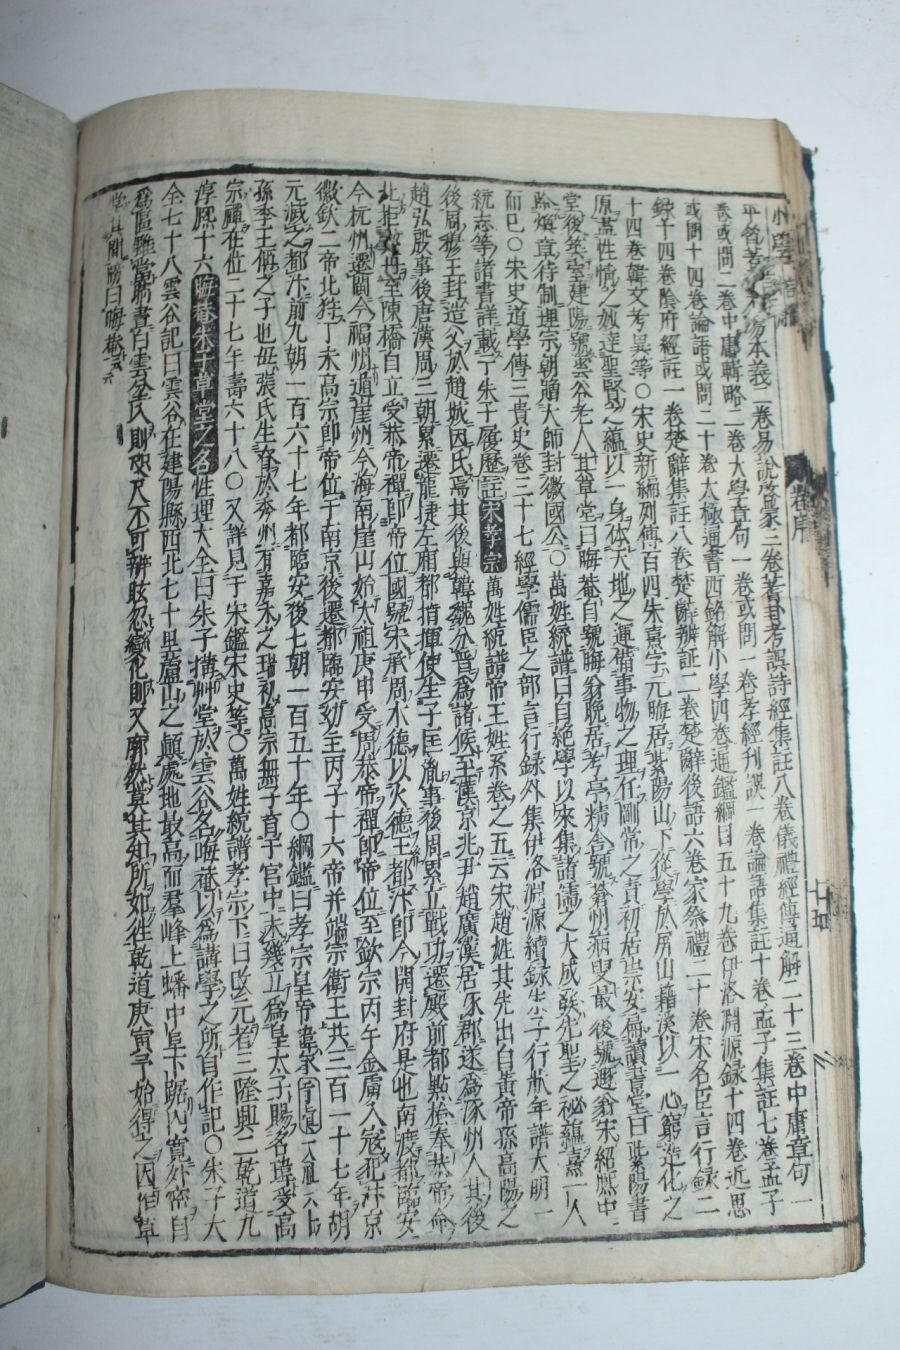 易本義二卷易說啓蒙三卷蓍卦考誤詩經集註八卷儀禮經傳通解二十三卷中庸章句一
卷或問二卷中庸輯略二卷大學章句一卷或問一卷孝經刊誤一卷論語集註十卷孟子集註七卷孟子
或問十四卷論語或問二十卷太極通書西銘解小學四卷通鑑綱目五十九卷伊洛淵源録十四卷近思
録十四卷陰府經註一卷楚辭集註八卷楚辭辨証二卷楚辭後語六卷家祭禮二十卷宋名臣言行録二
十四卷韓文考異等○宋史新編列傳百四朱熹字元晦居紫陽山下從學於屏山籍溪以一心窮造化之
原盡性情之妙達聖賢之蘊以一身体天地之運備事物之理任綱常之責初居崇安扁讀書堂曰紫陽書
堂後築室建陽號雲谷老人其草堂曰晦菴自號晦翁晩居考亭精舍號滄州病叟最後號遯翁宋紹熙中
除煥章待制理宗朝贈大師封徽國公○萬姓統譜曰自絶學以來集諸儒之大成發先聖之秘蘊熹一人
而已○朱史道學傳三貴史卷三十七經學儒臣之部言行録外集伊洛淵源續録朱子行狀年譜大明一
統志等諸書詳載于朱子履歷註宋孝宗萬姓統譜帝王姓系卷之五云宋趙姓其先出自黃帝孫高陽之
後周穆王封造父於趙城因氏焉其後與韓魏分晋爲諸候至漢京兆尹趙廣漢居涿郡遂為涿州人其後
趙弘殷事後唐漢周三朝累遷龍捷左廂都指揮使生子匡胤事後周累立戰功遷殿前都點檢奉恭帝命
北拒至陳橋自立受恭帝禪即帝位國號宋承周木德以火德王都汴即今開封府是也南渡都臨安
今杭州遷閩今福州遁崖州今海南崖山始太祖庚申受周恭帝禪即帝位至欽宗丙午金虜入寇犯汴京
徽欽二帝北狩丁未高宗即帝位于南京後遷都臨安幼主丙子十六帝并端宗衛王共三百一十七年胡
元滅之都汴前九朝一百六十七年都臨安後七朝一百五十年○綱鑑曰孝宗皇帝諱昚字元永太祖六世
孫秀王偁之子也母張氏生眘於秀州有嘉禾之瑞初高宗無子育于宮中未幾立爲皇太子賜名瑋受高
宗禪在位二十七年壽六十八○又詳見于宋鑑宋史等○萬姓統譜孝宗下曰改元者三隆興二乾道九
淳熙十六晦菴朱子草堂之名性理大全曰朱子搆艸堂於雲谷名晦菴以爲講學之所自作記○朱子大
全七十八雲谷記曰雲谷在建陽縣西北七十里蘆山之顛處地最高而羣峰上蟠中阜下踞内寬外密自
爲區雖當晴晝白雲坌入則咫尺不可辨眩忽變化則又廓然莫其知所如徃乾道庚寅予始得之因作草
堂其間牓曰晦菴